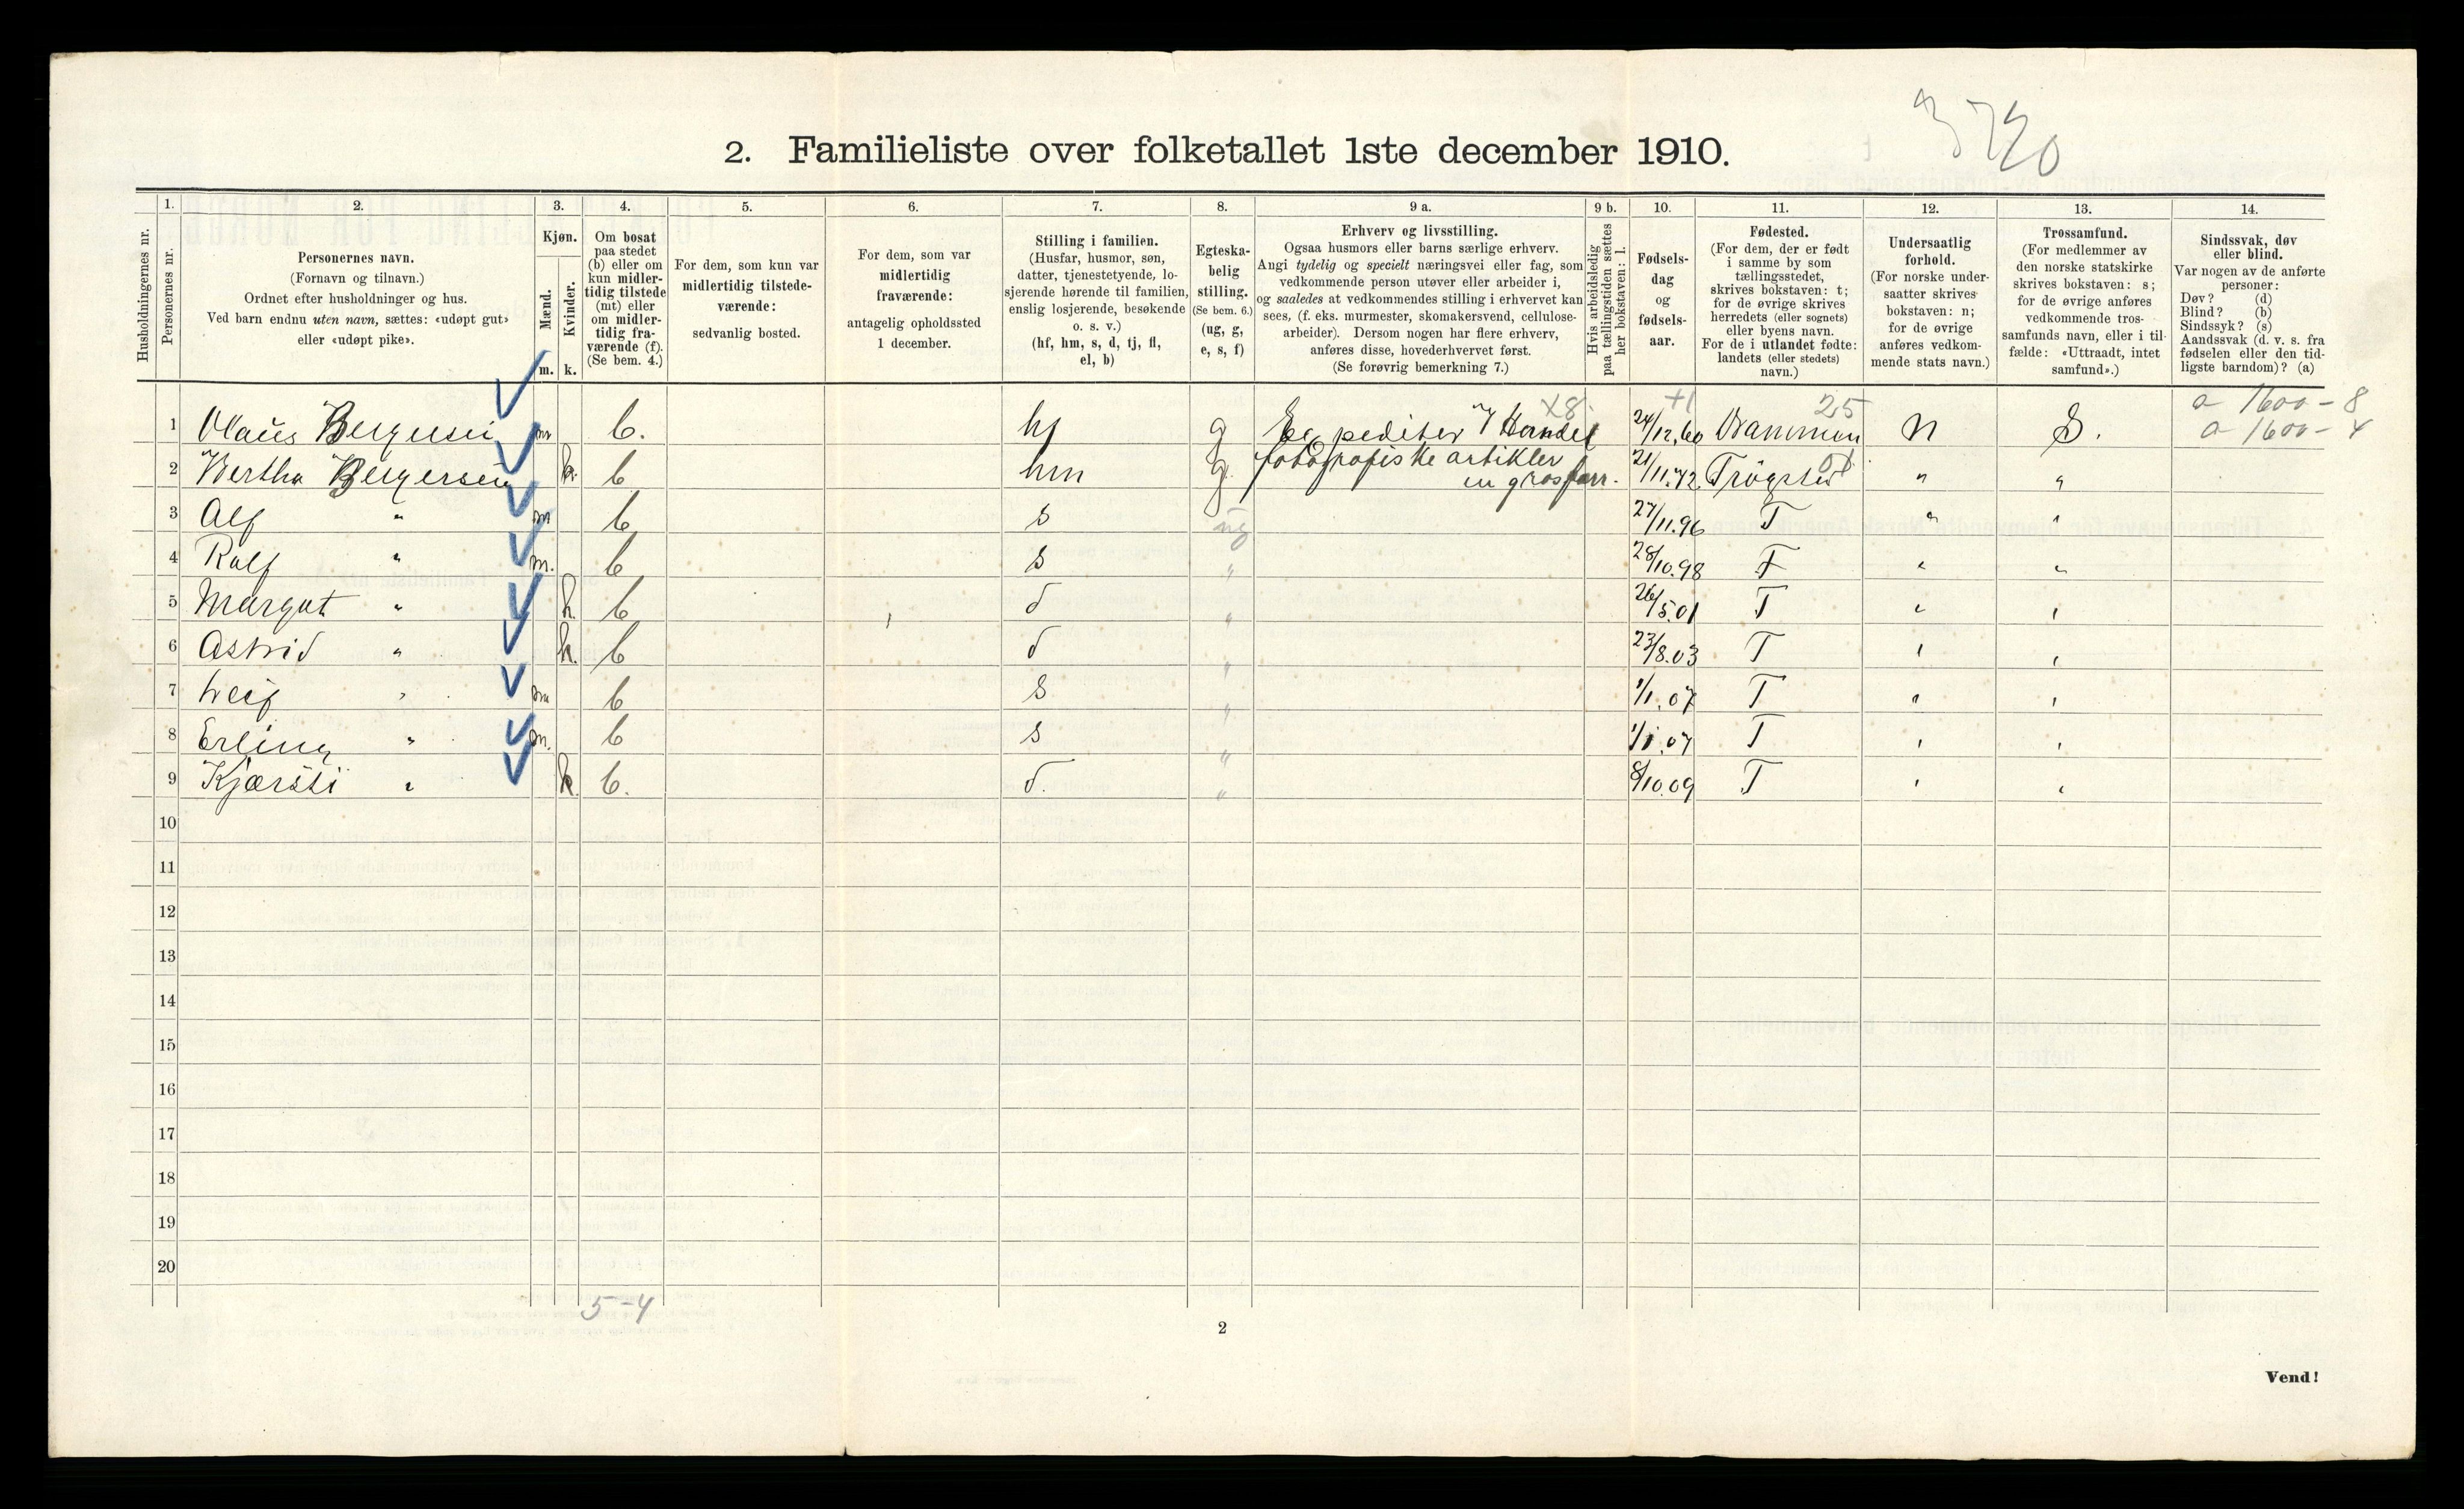 3720
2. Familieliste over folketallet 1ste december 1910.
Husholdningernes nr.
1. Personernes nr.
2. Personernes navn. (Fornavn og tilnavn.) Ordnet efter husholdninger og hus. Ved barn endnu uten navn, sættes: «udøpt gut» eller «udøpt pike».
3. Kjøn. Mænd. m. Kvinder. k.
4. Om bosat paa stedet (b) eller om kun midlertidig tilstede (mt) eller om midlertidig fraværende (f). (Se bem. 4.)
5. For dem, som kun var midlertidig tilstedeværende: sedvanlig bosted.
6. For dem, som var midlertidig fraværende: antagelig opholdssted 1 december.
7. Stilling i familien. (Husfar, husmor, søn, datter, tjenestetyende, losjerende hørende til familien, enslig losjerende, besøkende o. s. v.) (hf, hm, s, d, tj, fl, el, b)
8. Egteskabelig stilling. (Se bem. 6.) (ug, g, e, s, f)
9 a. Erhverv og livsstilling. Ogsaa husmors eller barns særlige erhverv. Angi tydelig og specielt næringsvei eller fag, som vedkommende person utøver eller arbeider i, og saaledes at vedkommendes stilling i erhvervet kan sees, (f. eks. murmester, skomakersvend, cellulosearbeider). Dersom nogen har flere erhverv, anføres disse, hovederhvervet først. (Se forøvrig bemerkning 7.)
9 b. Hvis arbeidsledig paa tællingstiden sættes her bokstaven: l.
10. Fødselsdag og fødselsaar.
11. Fødested. (For dem, der er født i samme by som tællingsstedet, skrives bokstaven: t; for de øvrige skrives herredets (eller sognets) eller byens navn. For de i utlandet fødte: landets (eller stedets) navn.)
12. Undersaatlig forhold. (For norske undersaatter skrives bokstaven: n; for de øvrige anføres vedkommende stats navn.)
13. Trossamfund. (For medlemmer av den norske statskirke skrives bokstaven: s; for de øvrige anføres vedkommende trossamfunds navn, eller i tilfælde: «Uttraadt, intet samfund».)
14. Sindssvak, døv eller blind. Var nogen av de anførte personer: Døv? (d) Blind? (b) Sindssyk? (s) Aandssvak (d. v. s. fra fødselen eller den tidligste barndom)? (a)
1 Olaus Bergersen m b. hf g Expeditør i Handel 24/12.60 Drammen 25 n S. a 1600 - 8
a 1600 - 4
2 Bertha Bergersen k. b hm g fotografiske artikler en gros 21/11.72 Trögstad 01 " "
3 Alf " m b s ug 27/11.96 T " "
4 Rolf " m. b s " 28/10.98 T " "
5 Margot " k. b d " 26/5.01 T " "
6 Astrid " k. b d " 23/8.03 T " "
7 Leif " m b s " 1/1.07 T " "
8 Erling " m. b s " 1/1.07 T " "
9 Kjærsti " k. b. d. " 8/10.09 T " "
10
11
12
13
14
15
16
17
18
19
20
5-4
2
Vend!